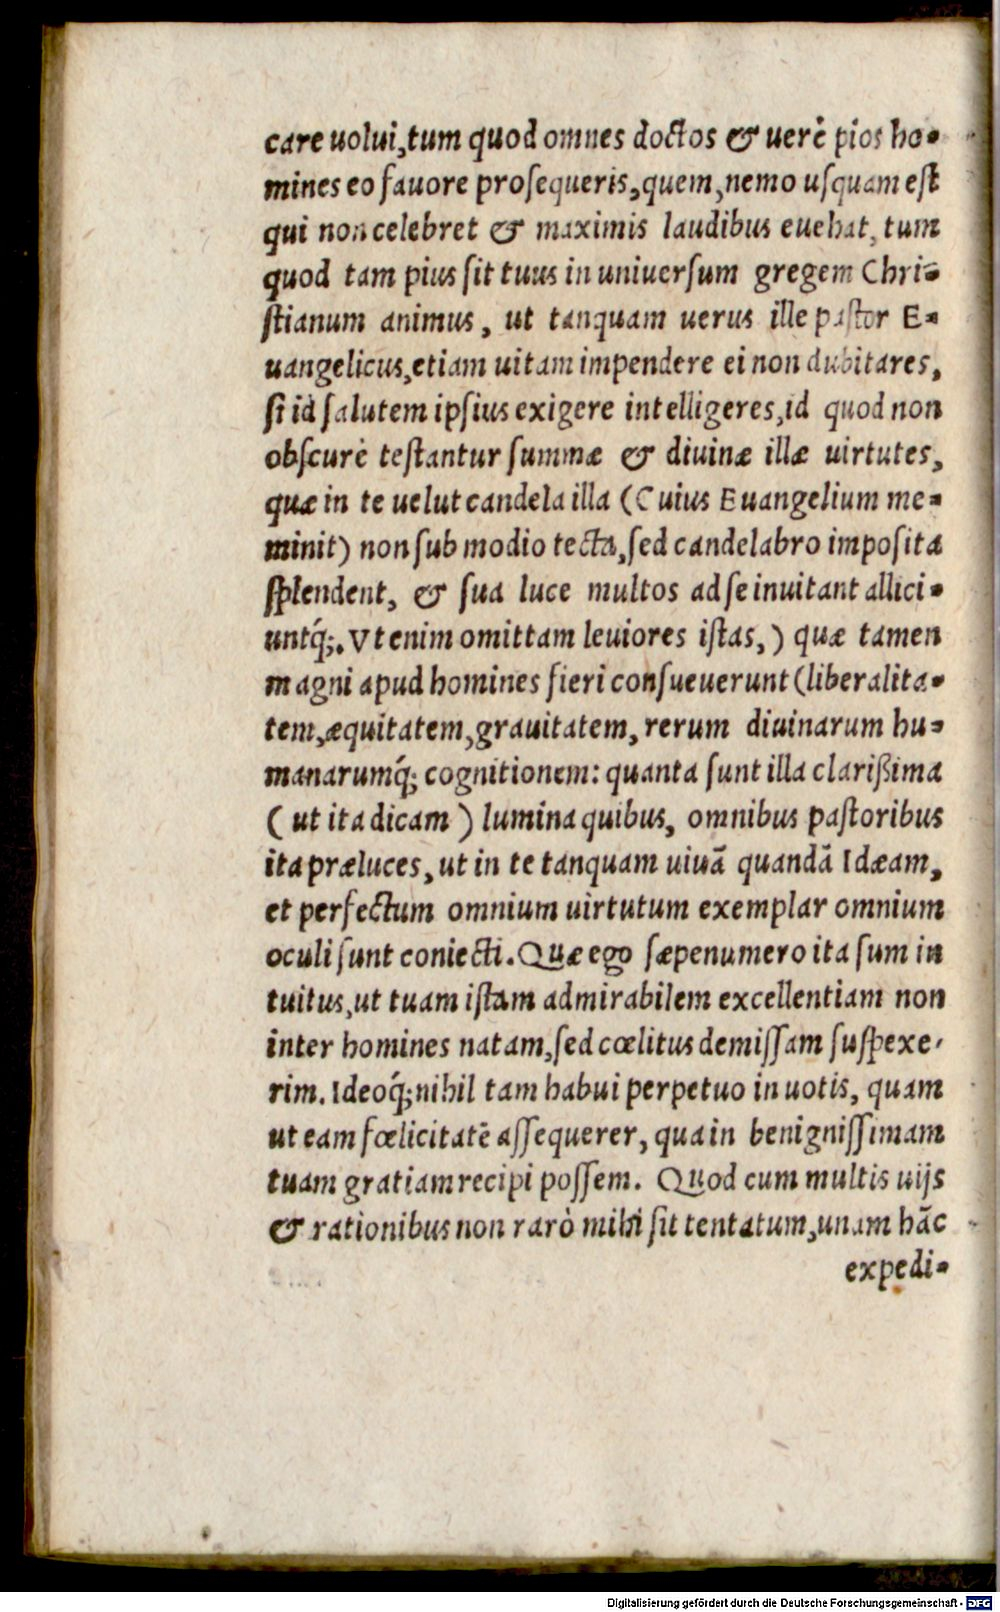 care uolui, tum quod omnes doctos & uerè pios ho-
mines eo fauore prosequeris, quem, nemo usquam est
qui non celebret & maximis laudibus euehat, tum
quod tam pius sit tuus in uniuersum gregem Chri-
stianum animus, ut tanquam uerus ille pastor E-
uangelicus, etiam uitam impendere ei non dubitares,
si id salutem ipsius exigere intelligeres, id quod non
obscurè testantur summæ & diuinæ illæ uirtutes,
quæ in te uelut candela illa (Cuius Euangelium me-
minit) non sub modio tecta, sed candelabro imposita
splendent, & sua luce multos ad se inuitant allici-
untq́;. Vt enim omittam leuiores istas,) quæ tamen
magni apud homines fieri consueuerunt (liberalita-
tem, æquitatem, grauitatem, rerum diuinarum hu-
manarumq́; cognitionem: quanta sunt illa clarißima
( ut ita dicam ) lumina quibus, omnibus pastoribus
ita præluces, ut in te tanquam uiuā quandā Idæam,
et perfectum omnium uirtutum exemplar omnium
oculi sunt coniecti. Quæ ego sæpenumero ita sum in
tuitus, ut tuam istam admirabilem excellentiam non
inter homines natam, sed cœlitus demissam suspexe-
rim. Ideoq́; nihil tam habui perpetuo in uotis, quam
ut eam fœlicitatē assequerer, qua in benignissimam
tuam gratiam recipi possem. Quod cum multis uijs
& rationibus non rarò mihi sit tentatum, unam hāc
expedi-
Digitalisierung gefördert durch die Deutsche Forschungsgemeinschaft - DFG